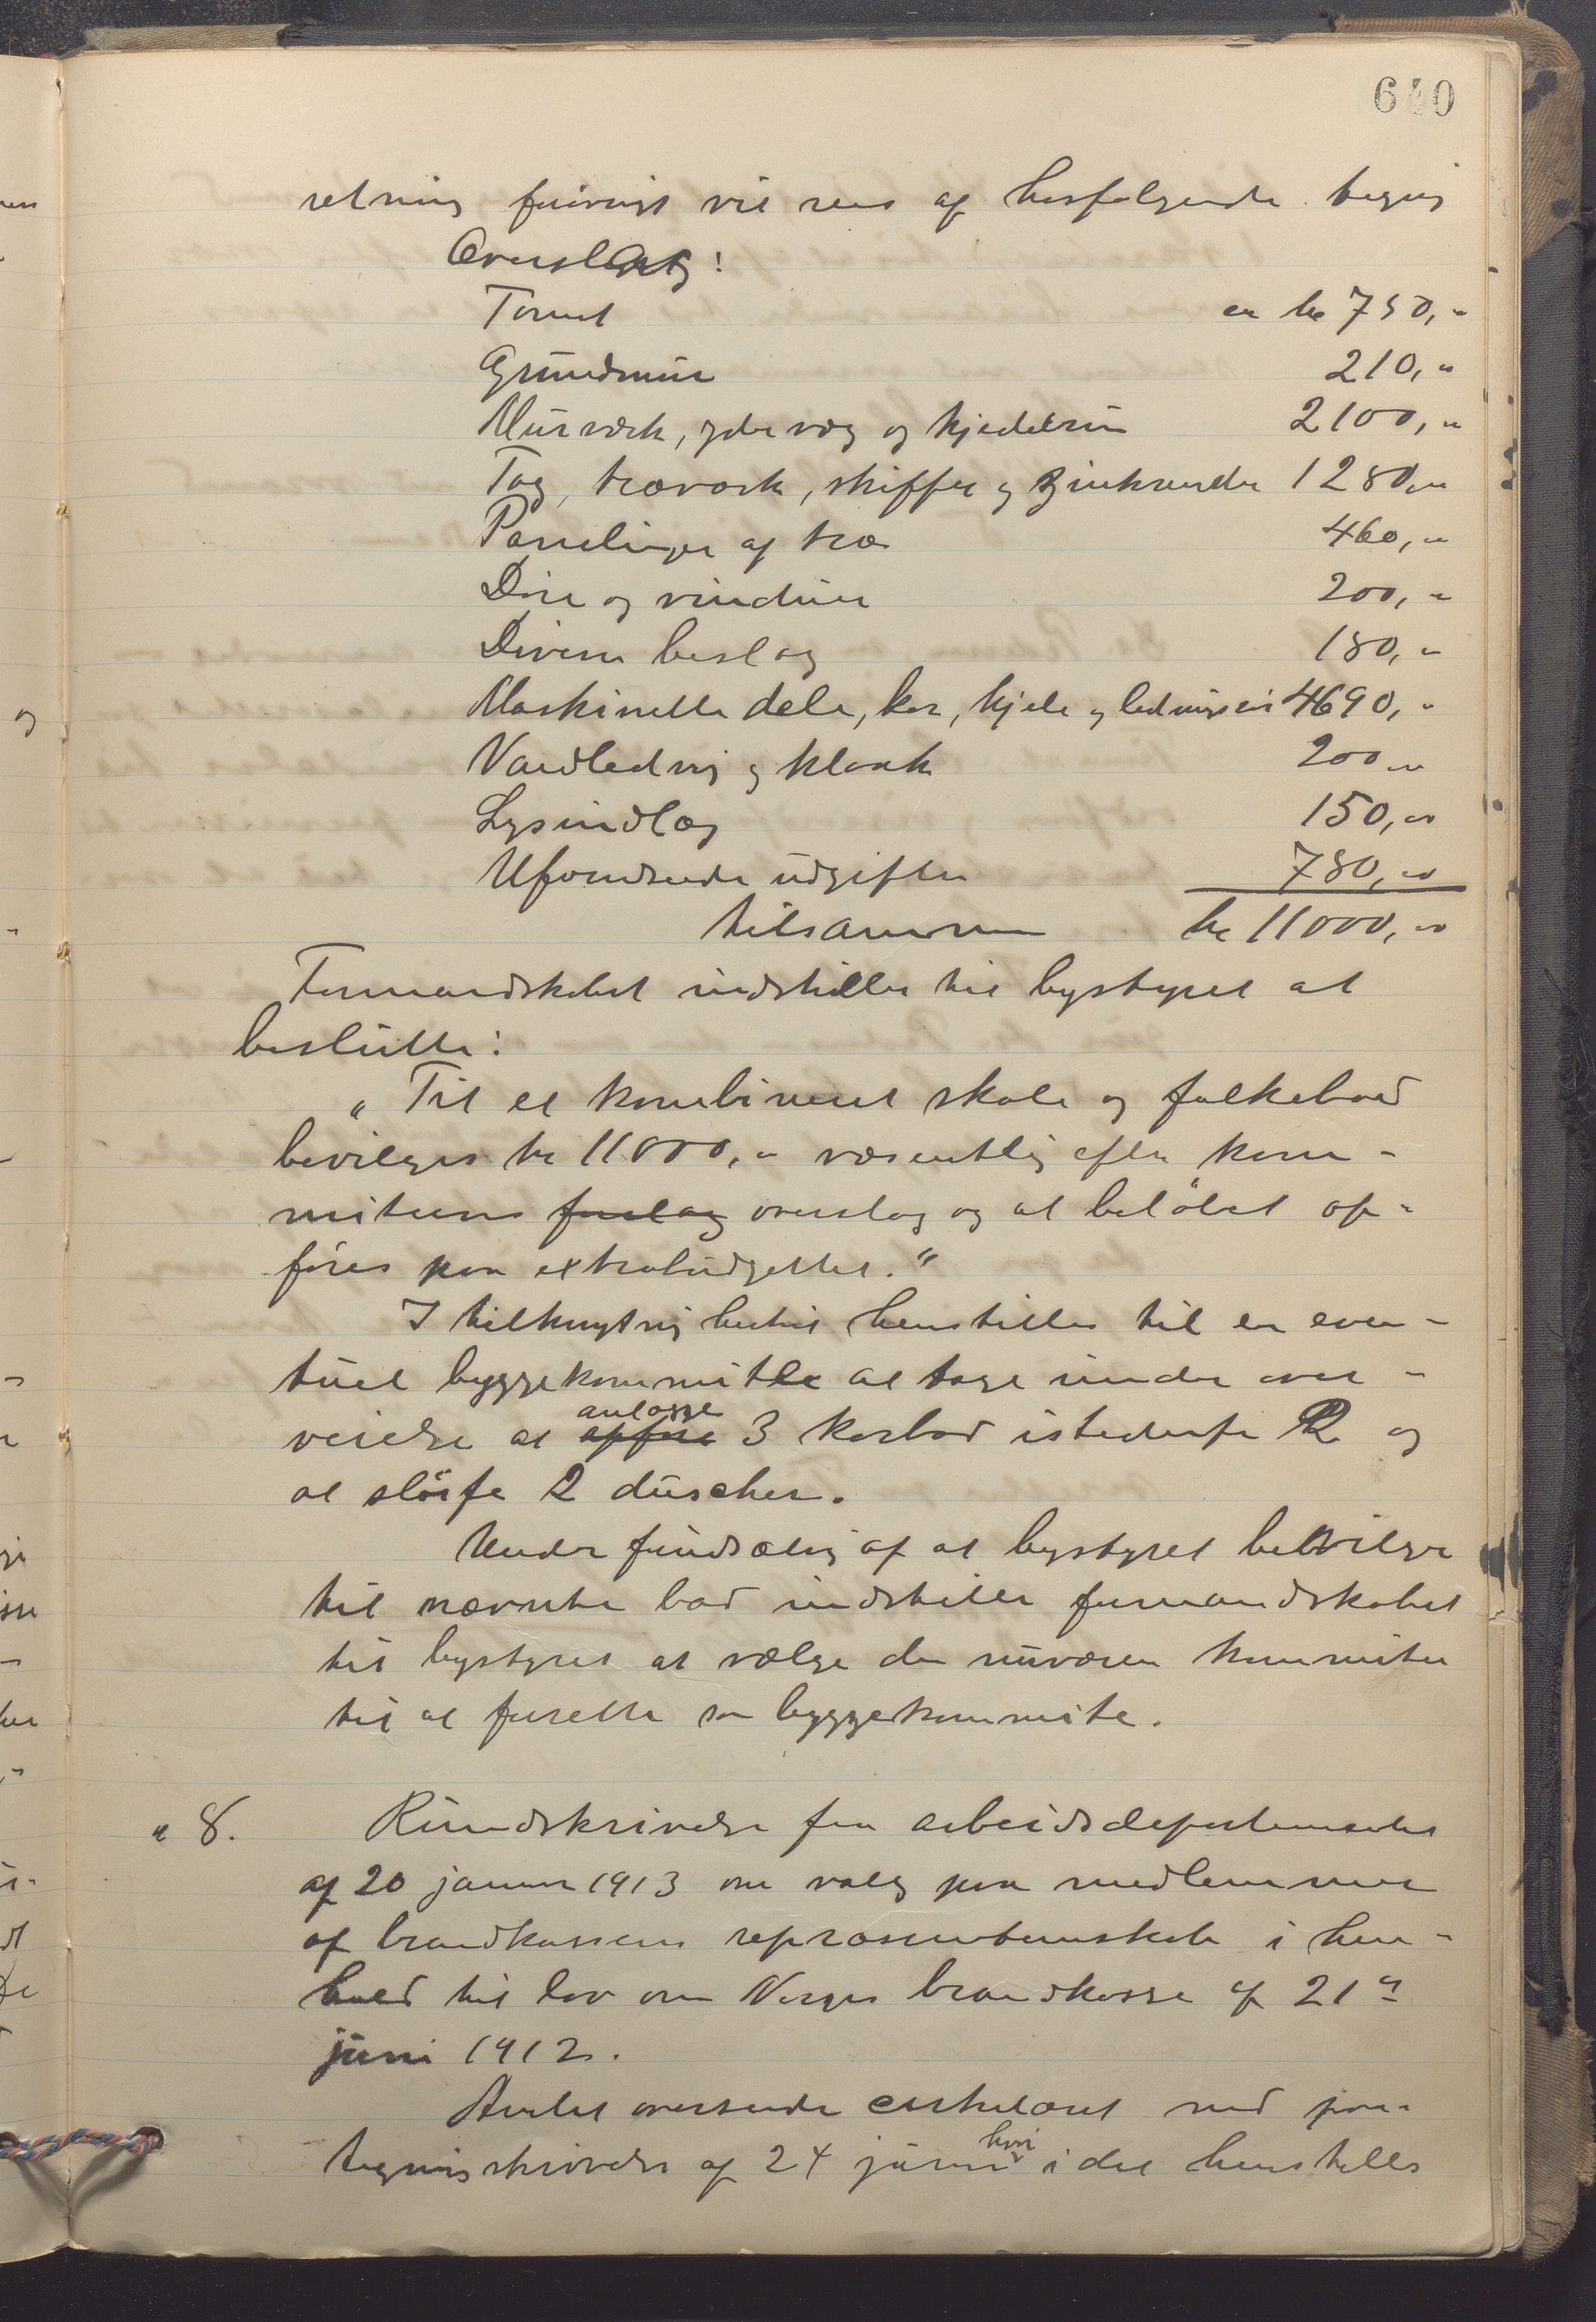 640
retning forøvrigt vil sees af hosfølgende tegnig
Overslag:
Tomt ca kr 750,-
Grundmur 210,-
Murværk, yder væg og kjedelrum 2100,-
Tag, træværk, skiffer og zinkrender 1280,-
Panelinger af træ 460,-
Døre og vinduer 200,-
Diverse beslag 180,-
Maskinelle dele, kar, kjele og ledninger 4690,-
Vandledning og kloak 200,-
Lysindlæg 150,-
Uforudseede udgifter 780,-
tilsammen kr 11000,-
Formandskabet indstiller til bystyret at
beslutte:
„Til et kombineret skole og folkebad
bevilges kr 11000,- væsentlig efter kom-
miteens forslag overslag og at beløbet op-
føres paa extrabudgettet.“
I tilknytnig hertil henstilles til en even-
tuel byggekommitte at tage under over-
veielse at opføre anlægge 3 karbad istedenfor 2 og
at sløife 2 duscher.
Under forudsætnig af at bystyret bevilger
til nævnte bad indstiller formandskabet
til bystyret at vælge den nuværen kommitee
til at forsette som byggekommite.
„ 8. Rundskrivelse fra arbeidsdepartementet
af 20 januar 1913 om valg paa medlemmer
af brandkassens repræsentantskab i hen-
hold til lov om Norges brandkasse af 21de
juni 1912.
Amtet oversender cirkulæret med paa-
tegningsskrivelse af 24 januar hvori i det henstilles